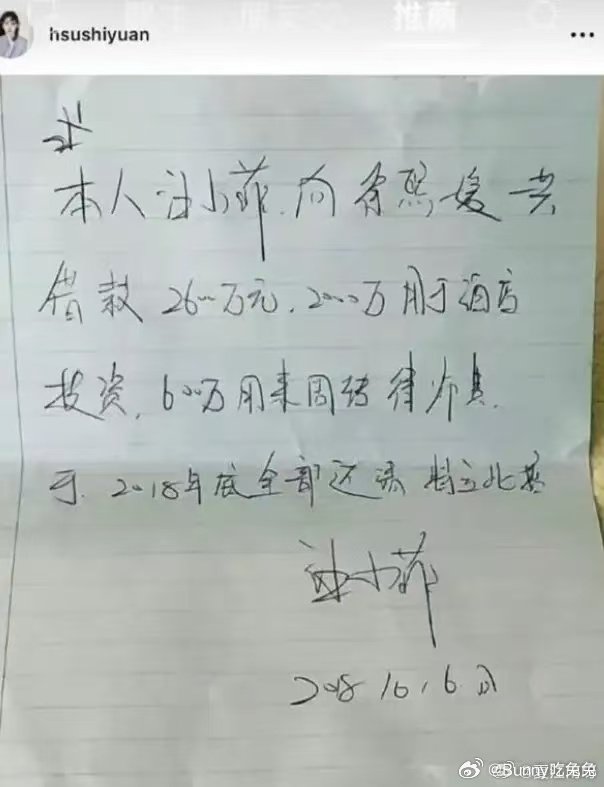 推薦
hsushiyuan
本人汪小菲,向徐熙媛共
借款2600万元,2000万用于酒店
投资,600万用来周转
于2018年底全部还清 特立此据
汪小菲
@Bunny吃兔兔